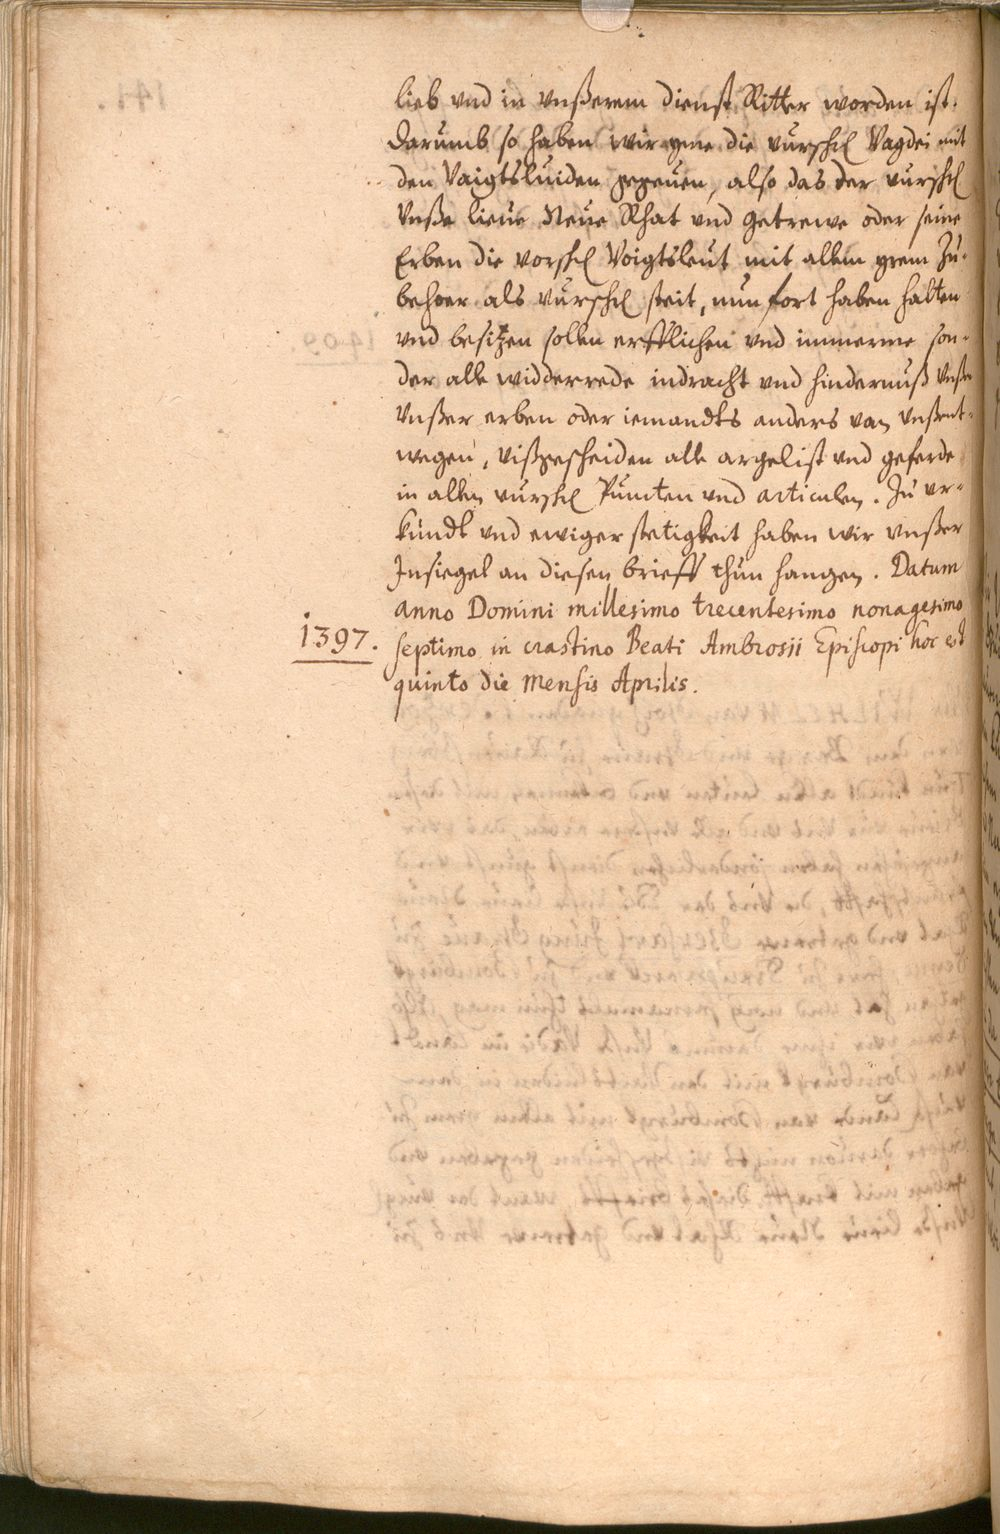 lieb vnd in vnßerem dienst Ritter worden ist.
darumb so haben wir yme die vursch. Vagdei mit
den Vaigtsluiden gegeuen, also das der vursch.
Vnße lieue Neue Rhat vnd getrewe oder seine
Erben die vorsch. Voigtsleut mit allem yrem Zu-
behoer als vursch. steit, nun fort haben halten
vnd besitzen sollen erfflichen vnd immerme son-
der alle widderrede indracht vnd hindernuß Vnße
Vnßer erben oder iemandts anders van vnßent-
wegen, vißgescheiden alle argelist vnd geferde
in allen vursch. Puncten vnd articulen. Zu vr-
kundt vnd ewiger stetigkeit haben wir vnßer
Insiegel an diesen brieff thun hangen. Datum
anno Domini millesimo trecentesimo nonagesimo
1397. septimo in crastino Beati Ambrosii Episcopi hoc est
quinto die Mensis Aprilis.